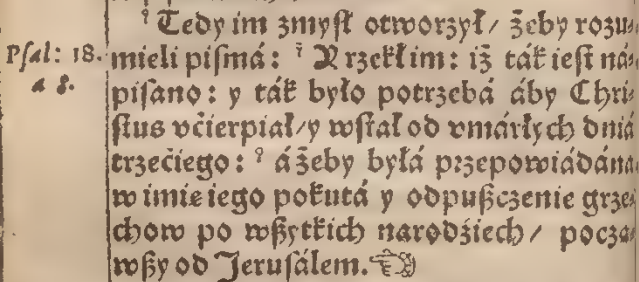 Tedy im zmysł otworzył/ żeby rozu⸗
Psal: 18. mieli pismá: Y rzekł im: iż ták iest ná⸗
a 8. pisano: y ták było potrzebá áby Chri⸗
stus vćierpiał/ y wstał od vmárłych dniá
trzećiego: áżeby byłá przepowiádána
w imię iego pokutá y odpuszczenie grze⸗
chow po wszytkich narodźiech/ począ⸗
wszy od Jeruſálem.